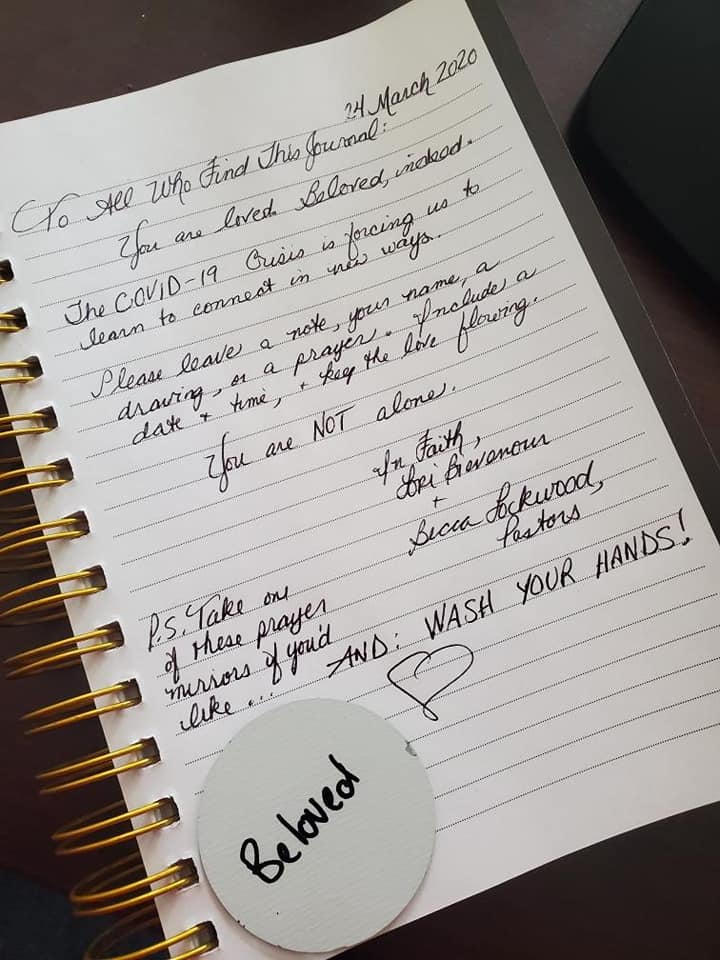 24 March 2020
To All Who Find This Journal:
You are loved. Beloved, indeed.
The COVID-19 Crisis is forcing us to
learn to connect in new ways.
Please leave a note, your name, a
drawing, or a prayer. Include a
date + time, + keep the love flowing.
You are NOT alone.
In Faith,
Lori Bievenour
+
Becca Lockwood,
Pastors
P.S. Take one
of these prayer
mirrors if you'd
like...
AND: WASH YOUR HANDS!
Beloved